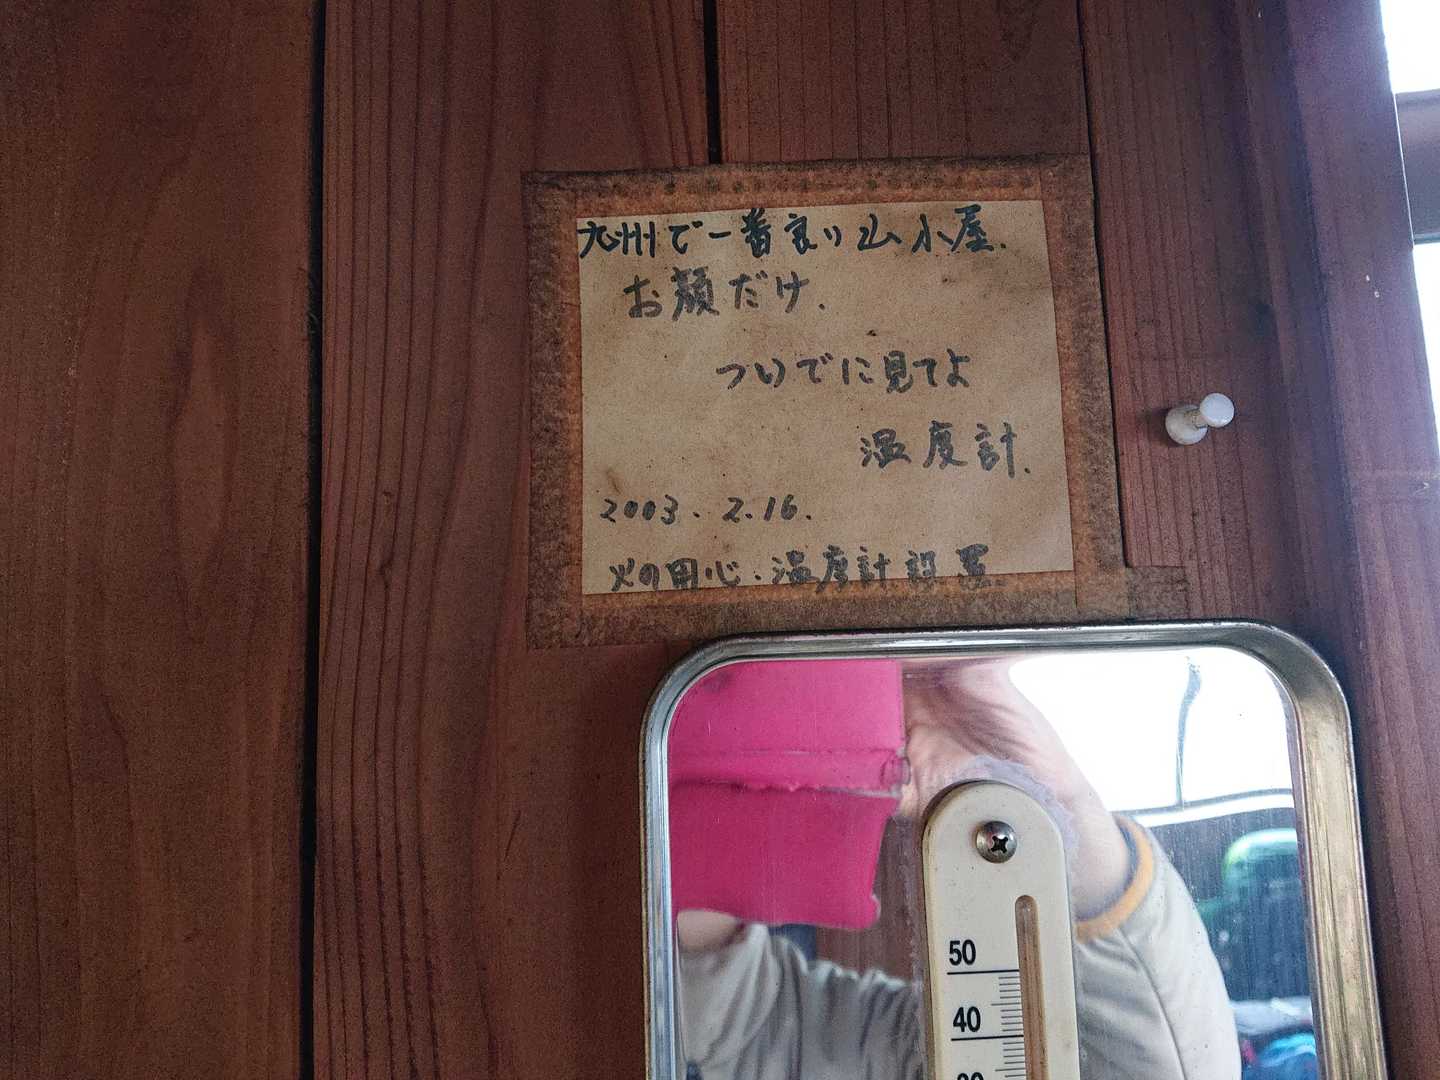 九州で一番良い山小屋.
お顔だけ.
ついでに見てよ
温度計.
2003. 2.16.
火の用心.温度計設置.
50
40